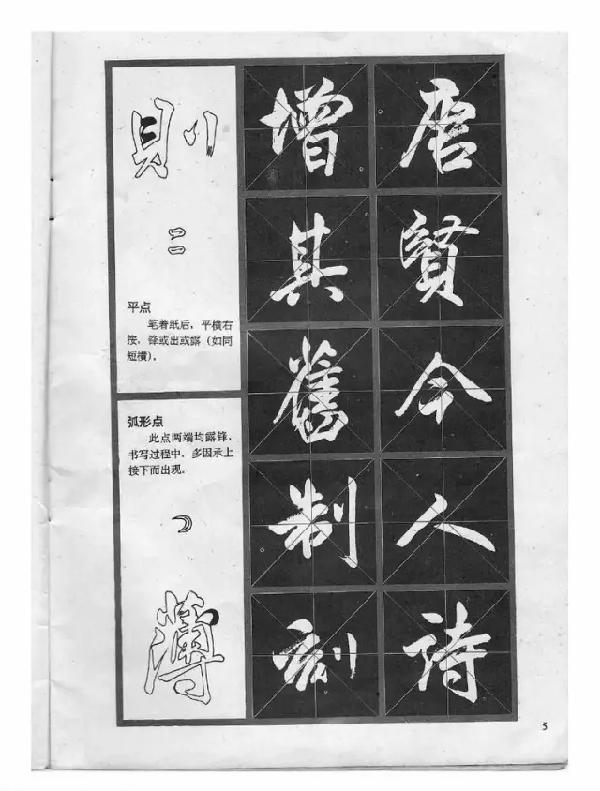 則
平点
笔着纸后,平横右
按,锋或出或露(如同
短横)。
弧形点
此点两端均露锋,
书写过程中,多因承上
接下而出现。
薄
增其舊制刻
唐賢今人詩
5